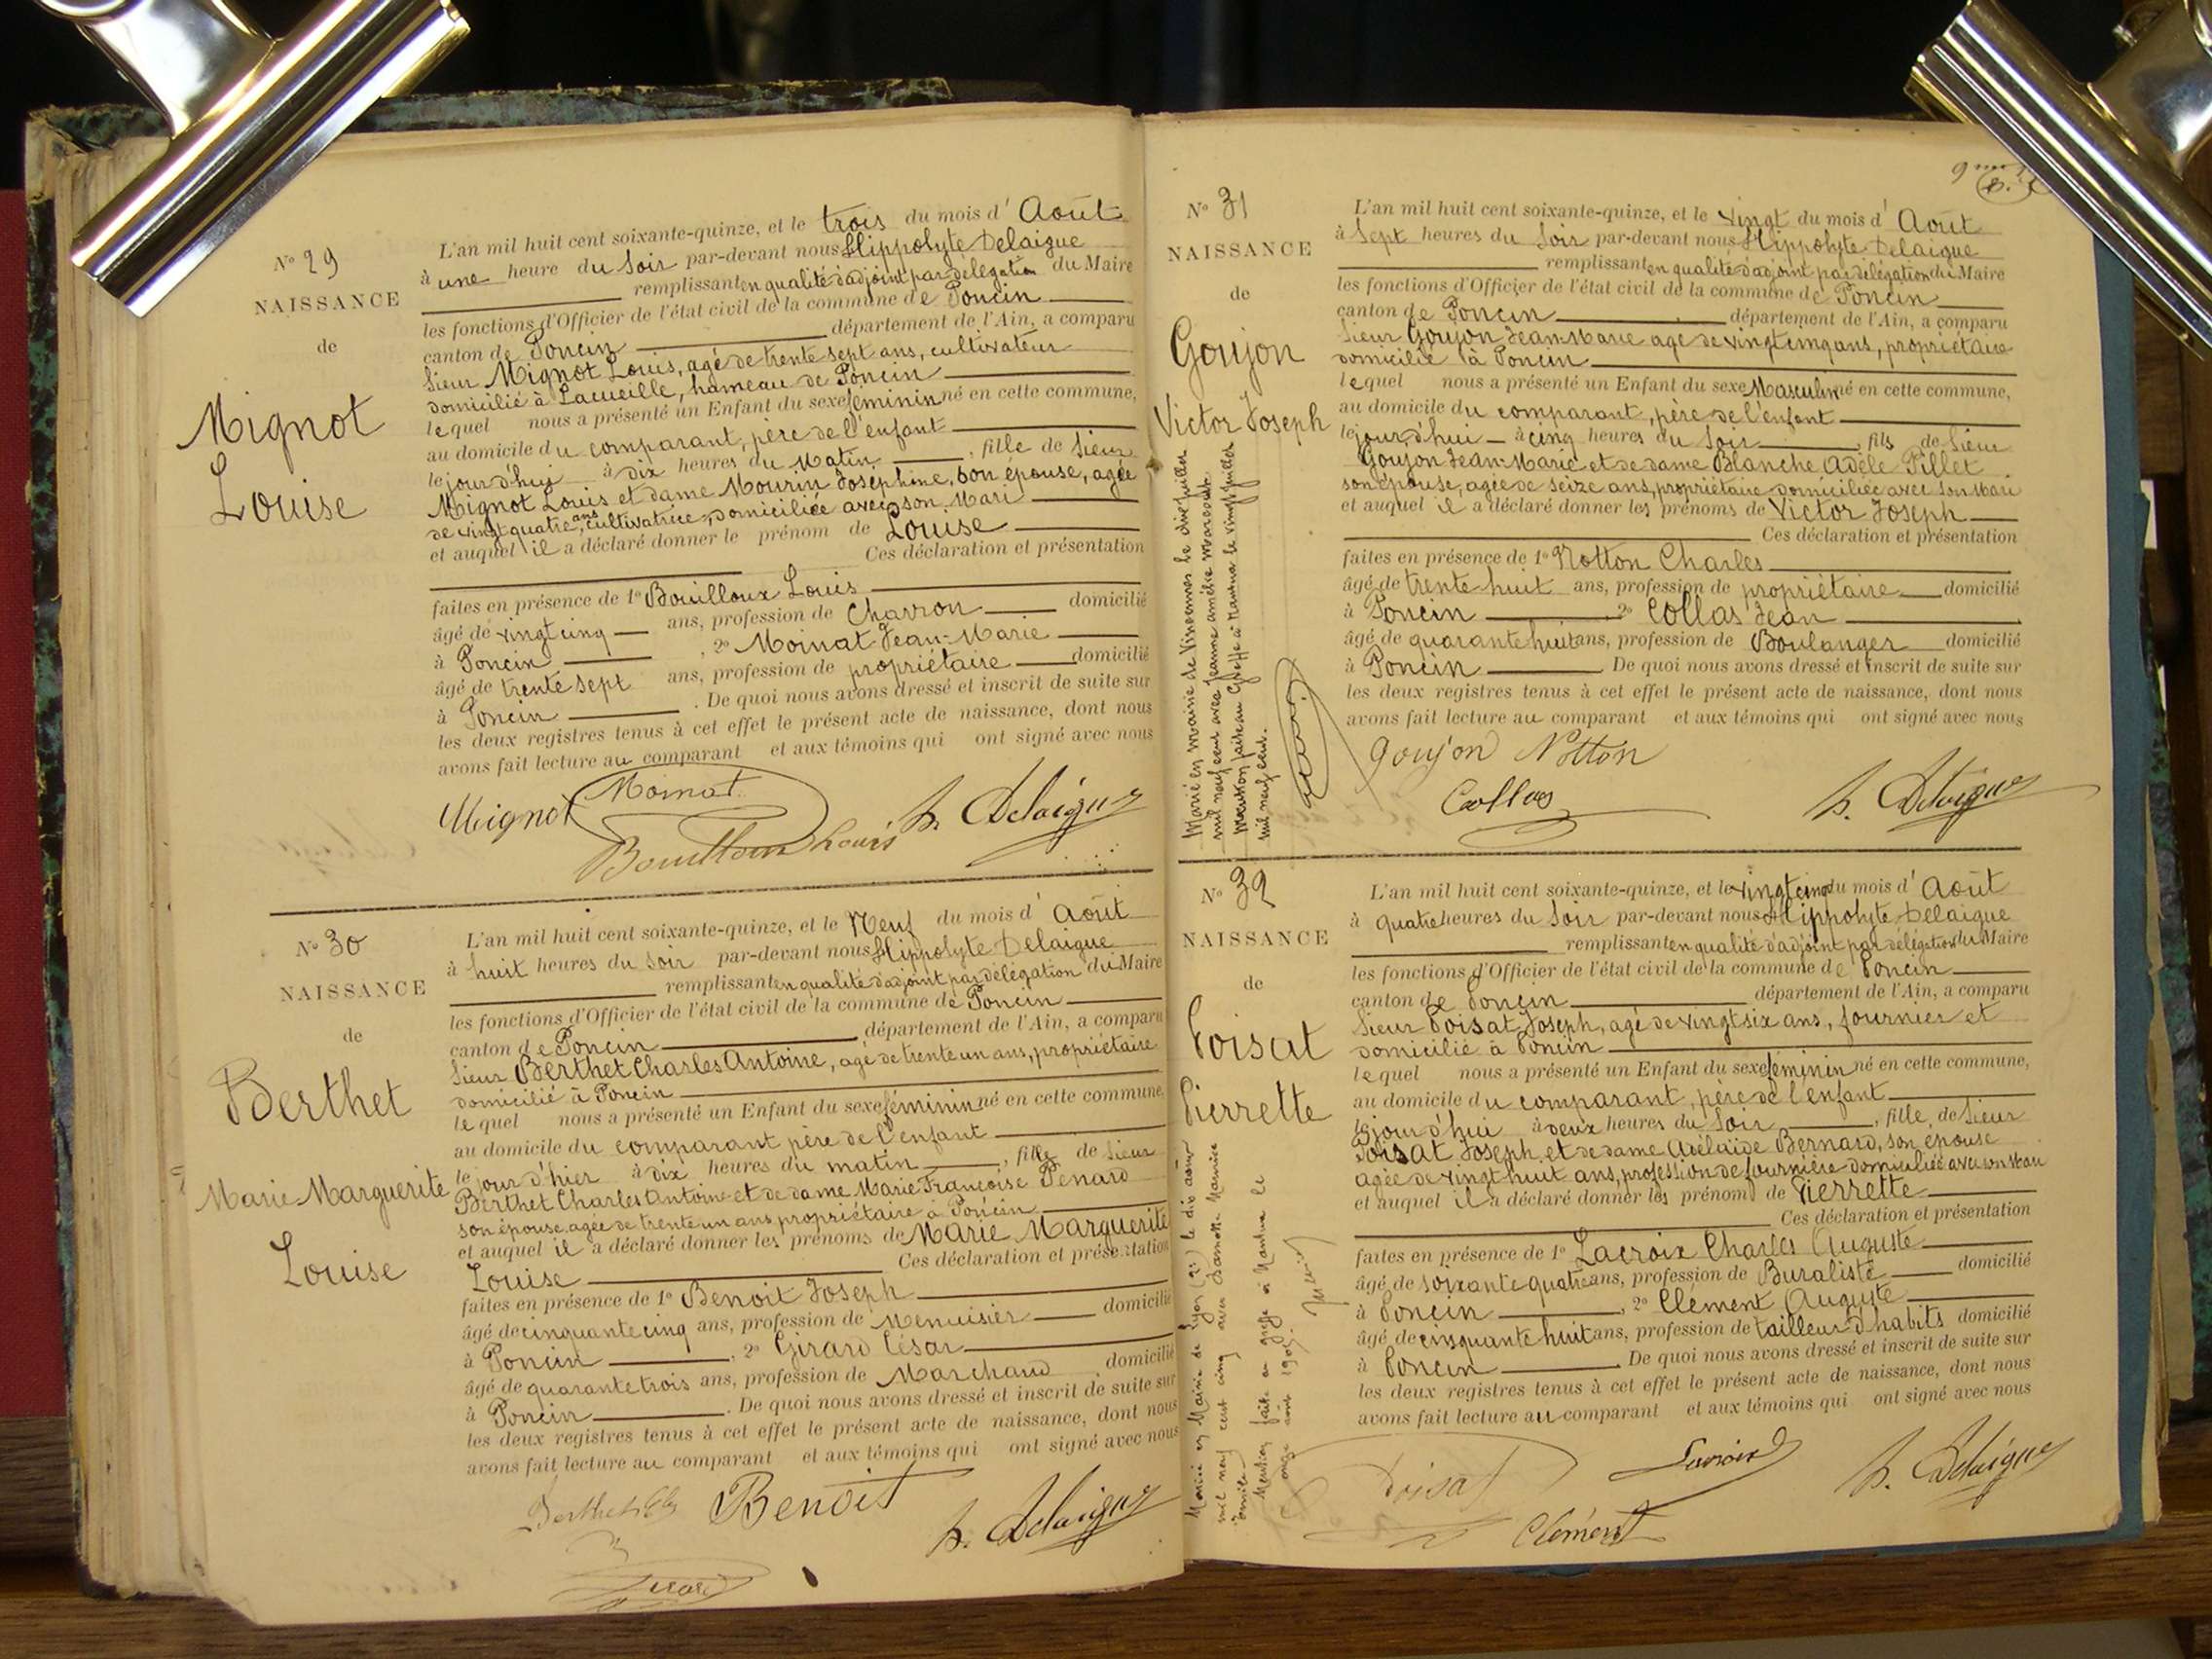 N° 29
NAISSANCE
de
Mignot
Louise
L'an mil huit cent soixante-quinze, et le trois du mois d'Août
à une heure du soir par-devant nous Hippolyte Delaigue
remplissant en qualité d'adjoint par délégation du Maire
les fonctions d'Officier de l'état civil de la commune de Poncin
canton de Poncin département de l'Ain, a comparu
Sieur Mignot Louis, agé de trente sept ans, cultivateur
domicilié à Lacueille, hameau de Poncin
lequel nous a présenté un Enfant du sexe féminin né en cette commune,
au domicile du comparant, père de l'enfant
le jour d'hui à dix heures du Matin, fille de Sieur
Mignot Louis et dame Mourin Joséphine, son épouse, agée
de vingt quatre ans, cultivatrice, domiciliée avec son Mari
et auquel il a déclaré donner le prénom de Louise
Ces déclaration et présentation
faites en présence de 1° Bouilloux Louis
âgé de vingt cinq ans, profession de Charron domicilié
à Poncin, 2° Moinat Jean-Marie
âgé de trente sept ans, profession de propriétaire domicilié
à Poncin. De quoi nous avons dressé et inscrit de suite sur
les deux registres tenus à cet effet le présent acte de naissance, dont nous
avons fait lecture au comparant et aux témoins qui ont signé avec nous
Mignot Moinat
Bouilloux Louis h. Delaigue
N° 30
NAISSANCE
de
Berthet
Marie Marguerite
Louise
L'an mil huit cent soixante-quinze, et le Neuf du mois d'Août
à huit heures du soir par-devant nous Hippolyte Delaigue
remplissant en qualité d'adjoint par délégation du Maire
les fonctions d'Officier de l'état civil de la commune de Poncin
canton de Poncin, département de l'Ain, a comparu
Sieur Berthet Charles Antoine, agé de trente un ans, propriétaire
domicilié à Poncin
lequel nous a présenté un Enfant du sexe féminin né en cette commune,
au domicile du comparant père de l'enfant
le jour d'hier à dix heures du matin, fille de Sieur
Berthet Charles Antoine et de dame Marie Françoise Penard
son épouse, agée de trente un ans propriétaire à Poncin
et auquel il a déclaré donner les prénoms de Marie Marguerite
Ces déclaration et présentation
Louise
faites en présence de 1° Benoit Joseph
âgé de cinquante cinq ans, profession de Menuisier domicilié
à Poncin, 2° Girard César
âgé de quarante trois ans, profession de Marchand domicilié
à Poncin. De quoi nous avons dressé et inscrit de suite sur
les deux registres tenus à cet effet le présent acte de naissance, dont nous
avons fait lecture au comparant et aux témoins qui ont signé avec nous
Berthet Benoit
h. Delaigue
Girard
N° 31
NAISSANCE
de
Goujon
Victor Joseph
L'an mil huit cent soixante-quinze, et le vingt du mois d'Août
à Sept heures du Soir par-devant nous Hippolyte Delaigue
remplissant en qualité d'adjoint par délégation du Maire
les fonctions d'Officier de l'état civil de la commune de Poncin
canton de Poncin département de l'Ain, a comparu
Sieur Goujon Jean-Marie agé de vingt cinq ans, propriétaire
domicilié à Poncin
lequel nous a présenté un Enfant du sexe Masculin né en cette commune,
au domicile du comparant, père de l'enfant
le jour d'hui à cinq heures du Soir, fils de Sieur
Goujon Jean-Marie et de dame Blanche Adèle Pillet
son épouse, agée de seize ans, propriétaire domiciliée avec son Mari
et auquel il a déclaré donner les prénoms de Victor Joseph
Ces déclaration et présentation
faites en présence de 1° Notton Charles
âgé de trente huit ans, profession de propriétaire domicilié
à Poncin 2° Collas Jean
âgé de quarante huit ans, profession de Boulanger domicilié
à Poncin. De quoi nous avons dressé et inscrit de suite sur
les deux registres tenus à cet effet le présent acte de naissance, dont nous
avons fait lecture au comparant et aux témoins qui ont signé avec nous
Goujon Notton
Collas h. Delaigue
Marié en mairie de Vincennes le dix juillet
mil neuf cent avec Jeanne amélie
Mention faite au Greffe à Nantua le vingt juillet
mil neuf cent.
N° 32
NAISSANCE
de
Poisat
Pierrette
L'an mil huit cent soixante-quinze, et le vingt cinq du mois d'Août
à quatre heures du Soir par-devant nous Hippolyte Delaigue
remplissant en qualité d'adjoint par délégation du Maire
les fonctions d'Officier de l'état civil de la commune de Poncin
canton de Poncin département de l'Ain, a comparu
Sieur Poisat Joseph, agé de vingt six ans, fournier et
domicilié à Poncin
lequel nous a présenté un Enfant du sexe féminin né en cette commune,
au domicile du comparant, père de l'enfant
le jour d'hui à deux heures du Soir, fille de Sieur
Poisat Joseph et de dame Adélaïde Bernard, son épouse
agée de vingt huit ans, profession de fournière domiciliée avec son Mari
et auquel il a déclaré donner les prénom de Pierrette
Ces déclaration et présentation
faites en présence de 1° Lacroix Charles Auguste
âgé de soixante quatre ans, profession de Buraliste domicilié
à Poncin, 2° Clément Auguste
âgé de cinquante huit ans, profession de tailleur d'habits domicilié
à Poncin. De quoi nous avons dressé et inscrit de suite sur
les deux registres tenus à cet effet le présent acte de naissance, dont nous
avons fait lecture au comparant et aux témoins qui ont signé avec nous
Poisat Lacroix
Clément h. Delaigue
Mariée en Mairie de Lyon le dix août
mil neuf cent cinq avec Maurice
Mention faite au greffe à Nantua le
onze août 1905.